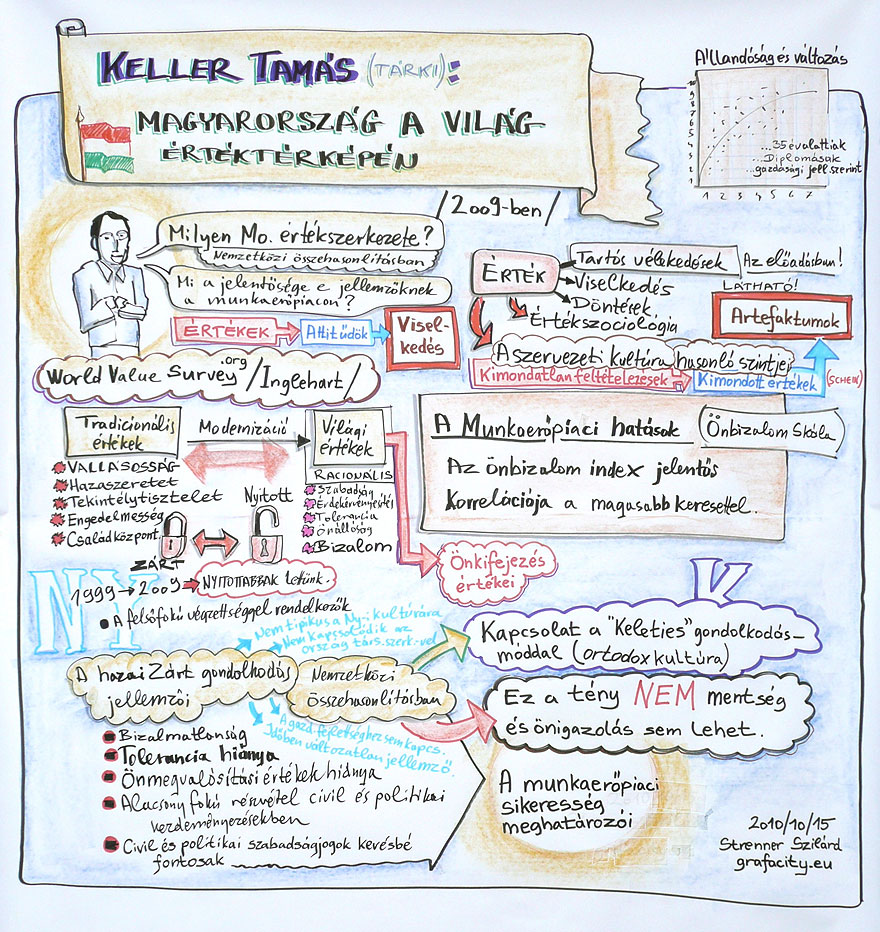 KELLER TAMÁS (TÁRKI):
MAGYARORSZÁG A VILÁG
ÉRTÉKTÉRKÉPÉN
/2009-ben/
Állandóság és változás
10
9
8
7
6
5
4
3
2
1
1 2 3 4 5 6 7
...35 év alattiak
...Diplomásak
...gazdasági jell. szerint
Milyen Mo. értékszerkezete?
Nemzetközi összehasonlításban
Mi a jelentősége e jellemzőknek
a munkaerőpiacon?
ÉRTÉKEK
Attitűdök
Visel-
kedés
World Value Survey.org /Inglehart/
ÉRTÉK
Tartós vélekedések
Viselkedés
Döntések
Értékszociológia
Az előadásban!
LÁTHATÓ!
Artefaktumok
A szervezeti kultúra hasonló szintjei
Kimondatlan feltételezések
Kimondott értékek
(SCHEIN)
Tradicionális
értékek
Modernizáció
Világi
értékek
VALLÁSOSSÁG
Hazaszeretet
Tekintélytisztelet
Engedelmesség
Család központ
ZÁRT
Nyitott
RACIONÁLIS
Szabadság
Érdekérvényesítés
Tolerancia
Önállóság
Bizalom
A Munkaerőpiaci hatások
Önbizalom Skála
Az önbizalom index jelentős
Korrelációja a magasabb keresettel.
Önkifejezés
értékei
NY
1999 → 2009
NYITOTTABBAK lettünk.
A felsőfokú végzettséggel rendelkezők
K
Nem tipikus a Ny-i kultúrára
Nem kapcsolódik az
ország társ. szerk-vel
Kapcsolat a "Keleties" gondolkodás-
móddal (ortodox kultúra)
A hazai Zárt gondolkodás
jellemzői
Nemzetközi
összehasonlításban
A gazd. fejlettséghez sem kapcs.
Időben változatlan jellemző.
Ez a tény NEM mentség
és önigazolás sem lehet.
Bizalmatlanság
Tolerancia hiánya
Önmegvalósítási értékek hiánya
Alacsony fokú részvétel civil és politikai
kezdeményezésekben
Civil és politikai szabadságjogok kevésbé
fontosak
A munkaerőpiaci
sikeresség
meghatározói
2010/10/15
Strenner Szilárd
grafacity.eu